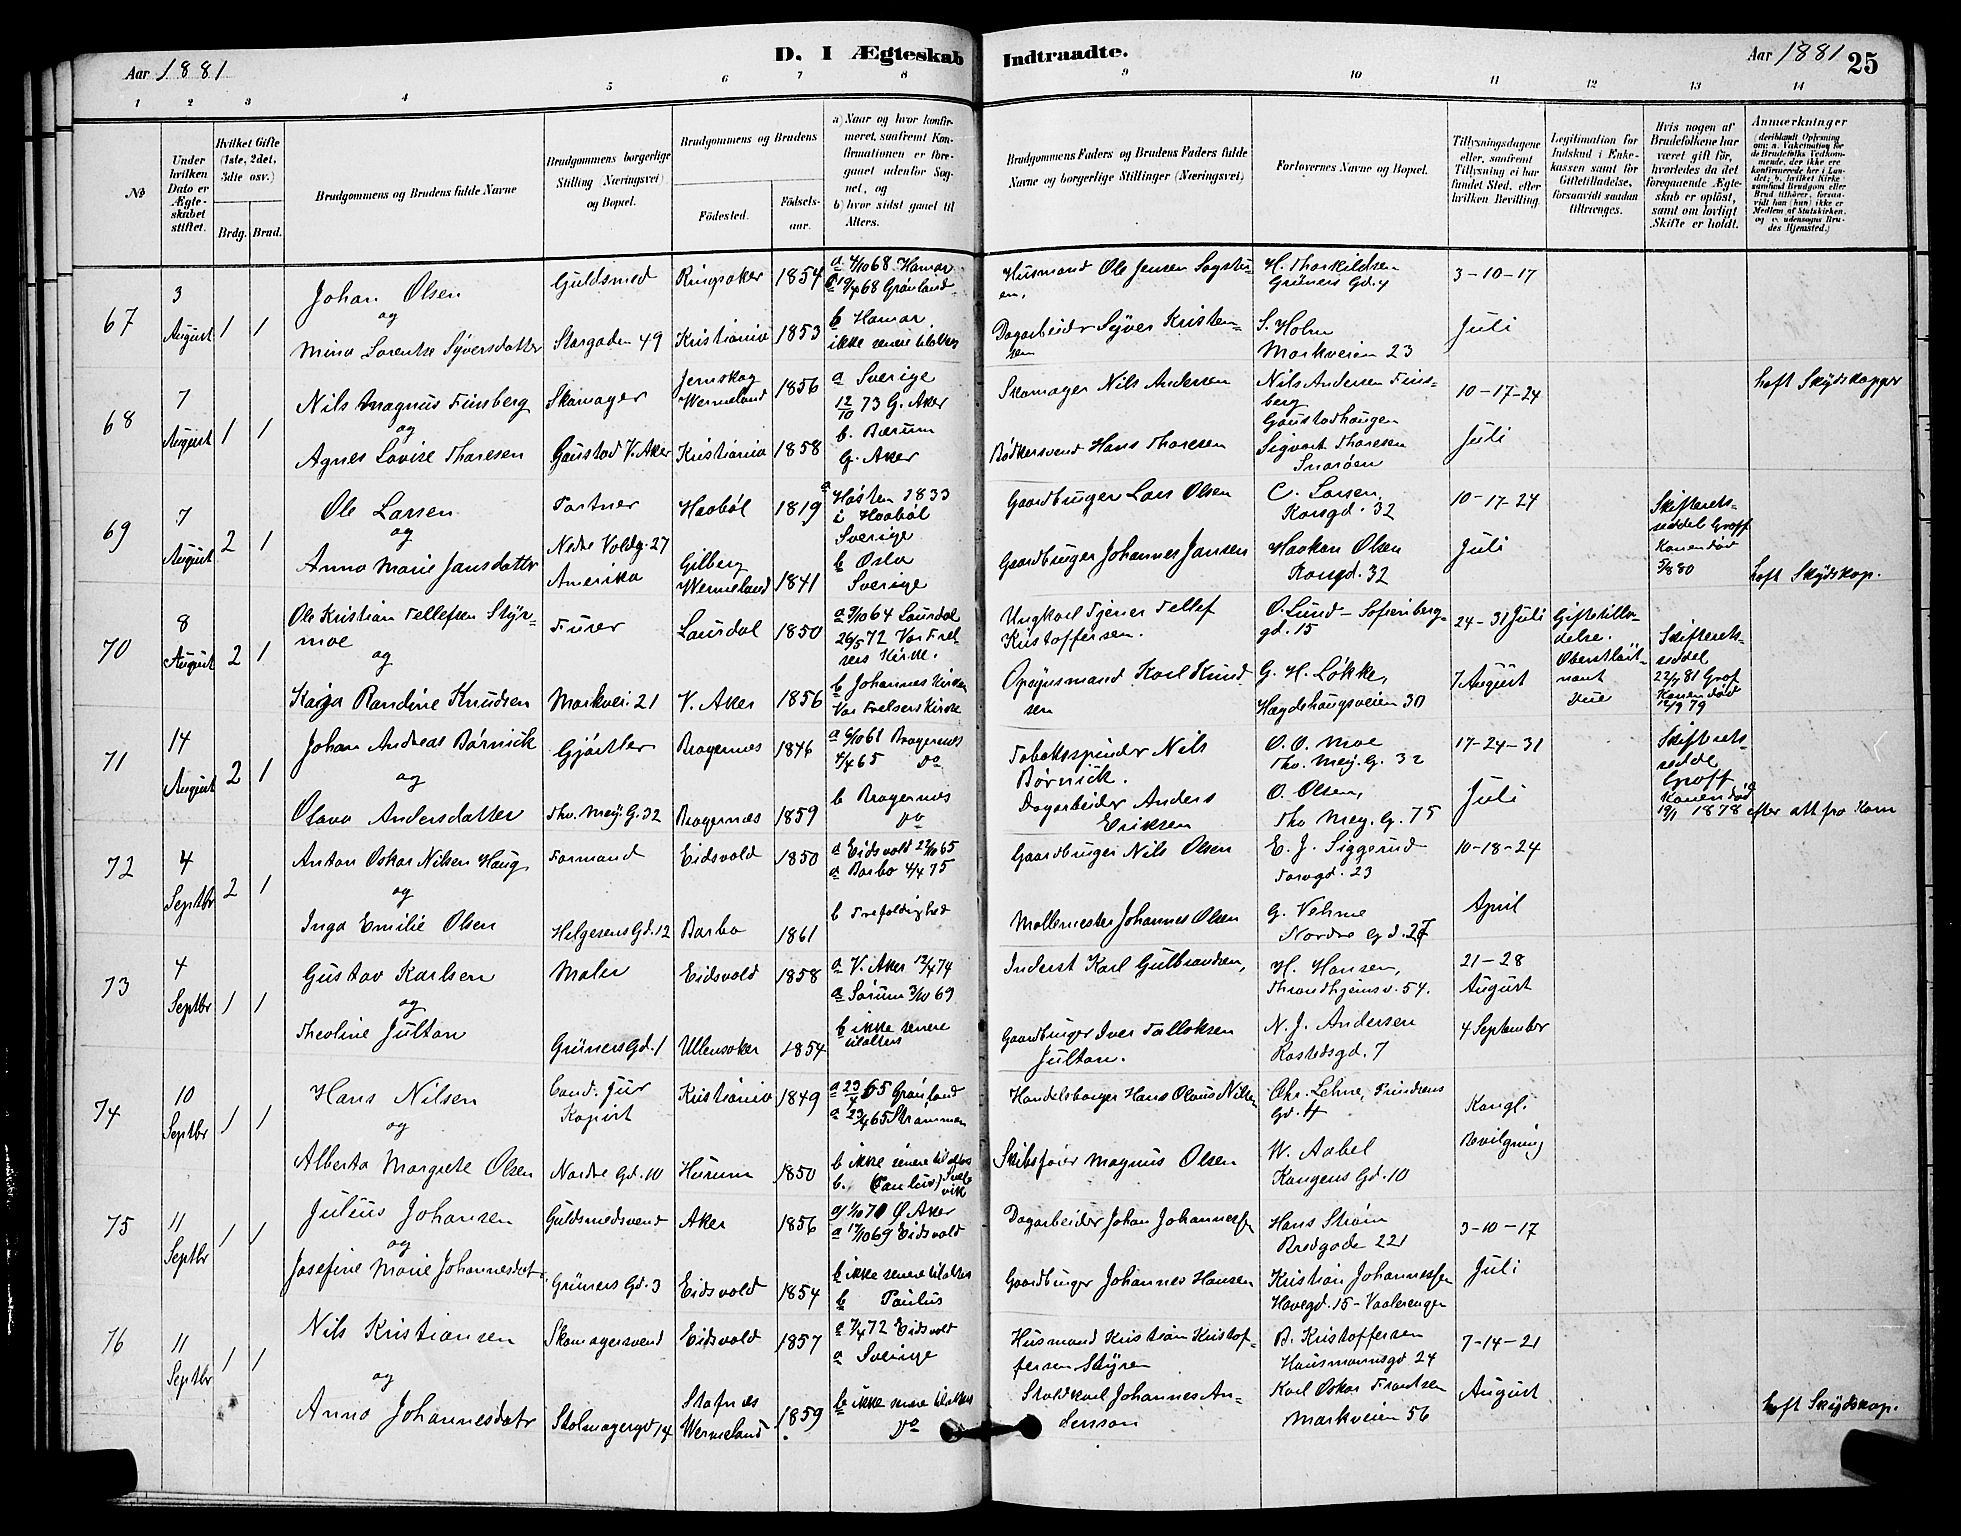 Aar 1881
D. I Ægteskab Indtraadte.
Aar 1881 25
1 2 3 4 5 6 7 8 9 10 11 12 13 14
No
Under hvilken Dato er Ægteskabet stiftet.
Hvilket Gifte (1ste, 2det, 3dte osv.)
Brdg. Brud.
Brudgommens og Brudens fulde Navne
Brudgommens borgerlige Stilling (Næringsvei) og Bopæl.
Brudgommens og Brudens
Födested. Födselsaar.
a) Naar og hvor konfirmeret, saafremt Konfirmationen er foregaaet udenfor Sognet, og
b) hvor sidst gaaet til Alters.
Brudgommens Faders og Brudens Faders fulde Navne og borgerlige Stillinger (Næringsvei)
Forlovernes Navne og Bopæl.
Tillysningsdagene eller, saafremt Tillysning ei har fundet Sted, efter hvilken Bevilling.
Legitimation for Indskud i Enkekassen samt for Giftetilladelse, forsaavidt saadan tiltrænges.
Hvis nogen af Brudefolkene har været gift før, hvorledes da det foregaaende Ægteskab er oplöst, samt om lovligt Skifte er holdt.
Anmærkninger
(deriblandt Oplysning om: a. Vakcination for de Brudefolks Vedkommende, der ikke ere konfirmerede her i Landet; b. hvilket Kirkesamfund Brudgom eller Brud tilhører, forsaavidt han (hun) ikke er Medlem af Statskirken, og c. udensogns Brudes Hjemsted.)
67 3 August 1 1
Johan Olsen Guldsmed Ringsaker 1854
og
Mina Lorentse Syversdatter Storgaden 49 Kristiania 1853
a 4/10 68 Hamar
68 Grønland
b Hamar
ikke senere tilalters
Husmand Ole Jensen
Dagarbeider Syver Kristensen
H. Thorkildsen
Grüners Gd. 4
S. Holm
Markveien 23
3-10-17
Juli
68 7 August 1 1
Nils Magnus Finsberg Skomager Jernskog Wermeland 1856
og
Agnes Lovise Thoresen Gaustad V. Aker Kristiania 1858
a Sverige
12/10 73 G. Aker
b. Bærum
G. Aker
Skomager Nils Andersen
Bødkersvend Hans Thoresen
Nils Andersen Finsberg
Gaustadhaugen
Sigvart Thoresen
Snarøen
10-17-24
Juli
haft Skydskopper
69 7 August 2 1
Ole Larsen Gartner Haabøl 1819
og Nedre Voldg. 27
Anna Marie Jansdatter Amerika Gilberg Wermeland 1841
a Høsten 1833
i Haabøl
Sverige
b Oslo
Sverige
Gaardbruger Lars Olsen
Gaardbruger Johannes Jansen
C. Larsen
Korsgd. 32
Haakon Olsen
Korsgd. 32
10-17-24
Juli
Skifteretsseddel
Konen død
haft Skydskop.
70 8 August 2 1
Ole Kristian Tellefsen Styrmoe Furer Laurdal 1850
og
Kaja Randine Knudsen Markvei. 21 V. Aker 1856
a 9/10 64 Laurdal
26/5 72 Vor Frelsers Kirke.
b Johannes Kirken
Vor Frelsers Kirke
Ungkarl Tjener Tellef Kristoffersen.
Opsynsmand Karl Knudsen
O. Lund - Sofienberg-
gd. 15
G. H. Løkke,
Hægdehaugsveien 30
24-31 Juli
7 August
Giftetilladelse.
Oberstløitnant
Due
Skifteretsseddel
22/7 81
Konen død
79
71 14 August 2 1
Johan Andreas Børnick Gjørtler Bragernes 1846
og
Olava Andersdatter Thv. Mey. G. 32 Bragernes 1859
a 6/10 61 Bragernes
65 do
b Bragernes
do
Tobaksspinder Nils Børnick.
Dagarbeider Anders Eriksen
O. O. Moe
Thv. Mey. G. 32
O. Olsen,
Thv Mey. G. 75
17-24-31
Juli
Skifteretsseddel
Konen død
1878
efter att fra Kom
72 4 Septbr 2 1
Anton Oskar Nilsen Haug Formand Eidsvold 1850
og
Inga Emilie Olsen Helgesens Gd. 12 Barbo 1861
a Eidsvold 65
a Barbo 4/4 75
b Trefoldighed
Gaardbruger Nils Olsen
Møllemester Johannes Olsen
E. J. Siggerud
Torvgd. 23
G. Vehme
Nordre Gd. 27
10-18-24
April
73 4 Septbr 1 1
Gustav Karlsen Maler Eidsvold 1858
og
Theoline Jultan Grüners Gd. 1 Ullensaker 1854
a V. Aker 12/4 74
a Sørum 3/10 69
b ikke senere
tilalters
Inderst Karl Gulbrandsen,
Gaardbruger Iver Tolloksen Jultan.
H. Hansen,
Throndhjemsv. 54.
N. J. Andersen
Rostedsgd. 7
21-28
August
4 September
74 10 Septbr 1 1
Hans Nilsen Cand. Jur Kopist Kristiania 1849
og
Alberta Margrete Olsen Nordre Gd. 10 Hurum 1850
a 23/4 65 Grønland
a 23/4 65 Strømmen
b ikke senere tilalters
b. Paulus
Handelsborger Hans Olaus Nilsen
Skibsfører Magnus Olsen
Chr. Lehne,
Gd. 4
W. Aabel
Kongens Gd. 10
Kongl.
Bevilgning
75 11 Septbr 1 1
Julius Johansen Guldsmedsvend Aker 1856
og
Josefine Marie Johannesdatr Grüners Gd. 3 Eidsvold 1854
a 1/10 71 Ø Aker
a 17/10 69 Eidsvold
b ikke senere tilalters
b Paulus
Dagarbeider Johan Johannessen
Gaardbruger Johannes Hansen
Hans Strøm
Bredgade 221
Kristian Johannessen
Havegd. 15 - Vaalerengen
3-10-17
Juli
76 11 Septbr 1 1
Nils Kristiansen Skomagersvend Eidsvold 1857
og
Anna Johannesdatr Stolmagergd 14 Stafnes Wermeland 1859
a 7/4 72 Eidsvold
a Sverige
b ikke senere tilalters
do
Husmand Kristian Kristoffersen Styren
Staldkarl Johannes Andersson
B. Kristoffersen
Hausmannsgd 24
Karl Oskar Frantsen
Markveien 56
7-14-21
August
haft Skydskop.